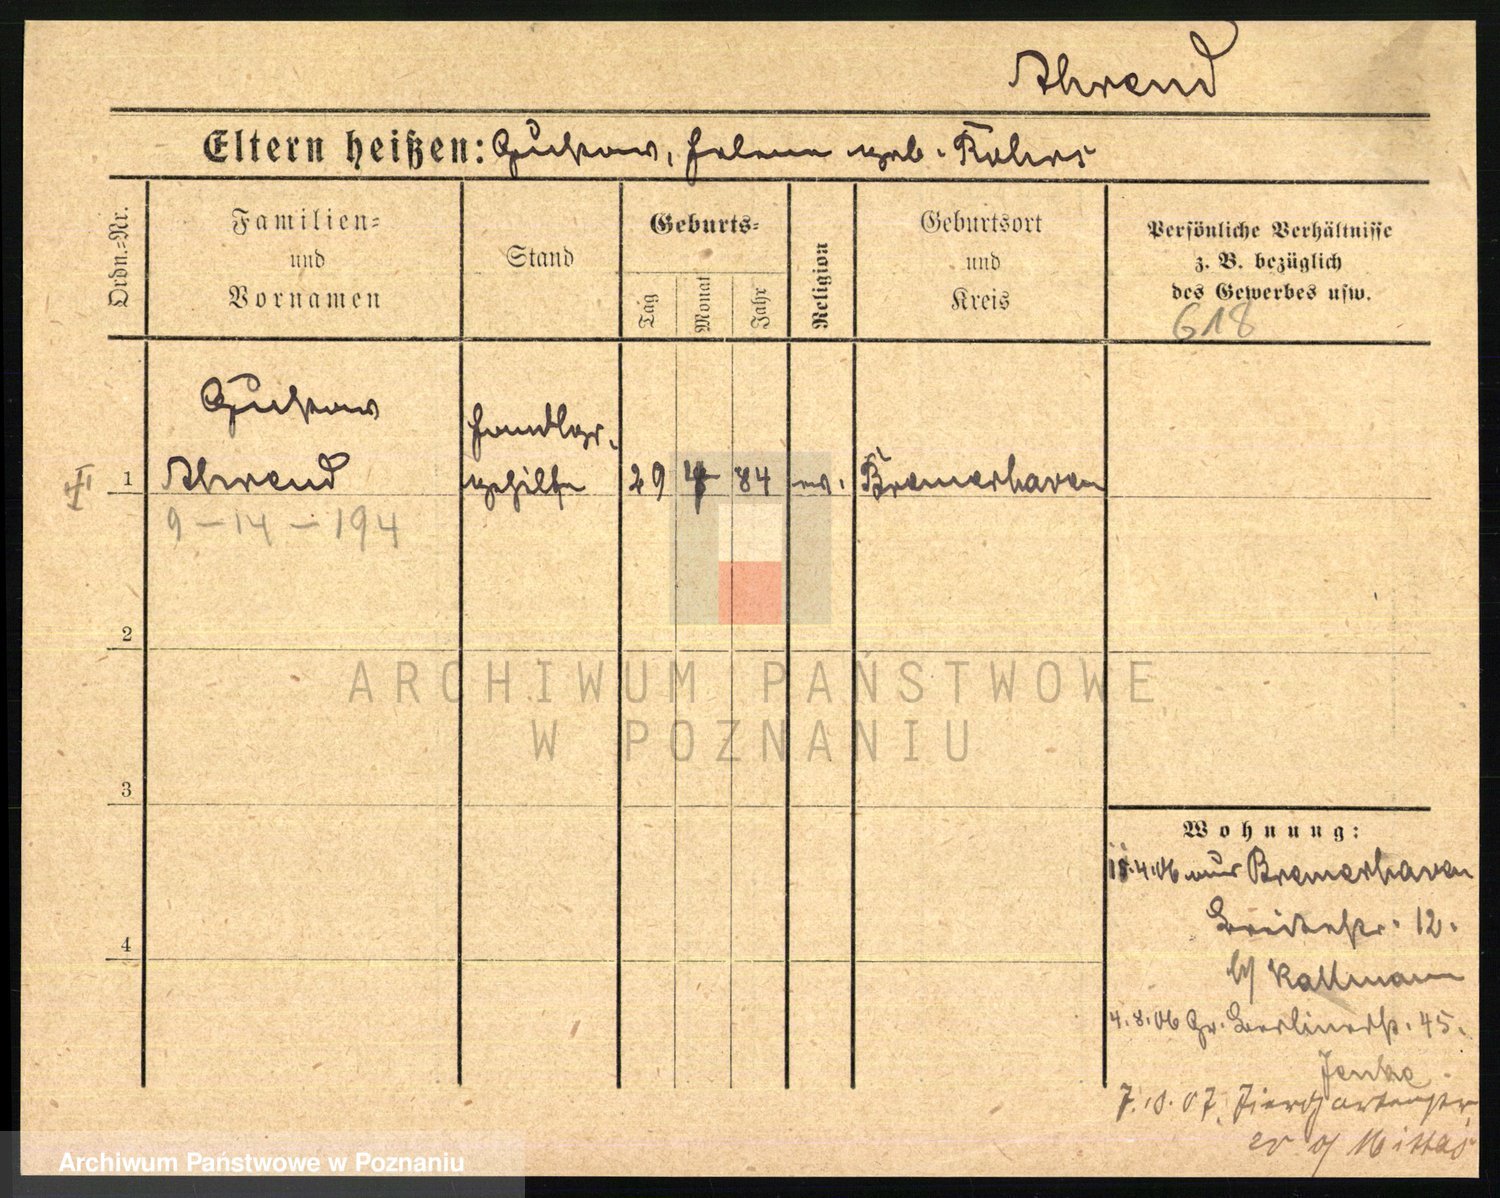 Ahrend
Eltern heißen: Gustav, Helene geb. Kohrs
Ordn.=Nr.
Familien=
und
Vornamen
Stand
Geburts=
Tag
Monat
Jahr
Religion
Geburtsort
und
Kreis
Persönliche Verhältnisse
z. B. bezüglich
des Gewerbes usw.
618
Gustav
Handlgs.
1 Ahrend gehilfe 29 4 84 ev. Bremerhaven
9 - 14 - 194
2
ARCHIWUM PAŃSTWOWE
W POZNANIU
3
Wohnung:
4.06 aus Bremerhaven
Breitestr. 12.
b/ Kallmann
4
4.8.06 Gr. Berlinerstr. 45.
7.10.07. Tiergartenstr
b/ Mittag
Archiwum Państwowe w Poznaniu